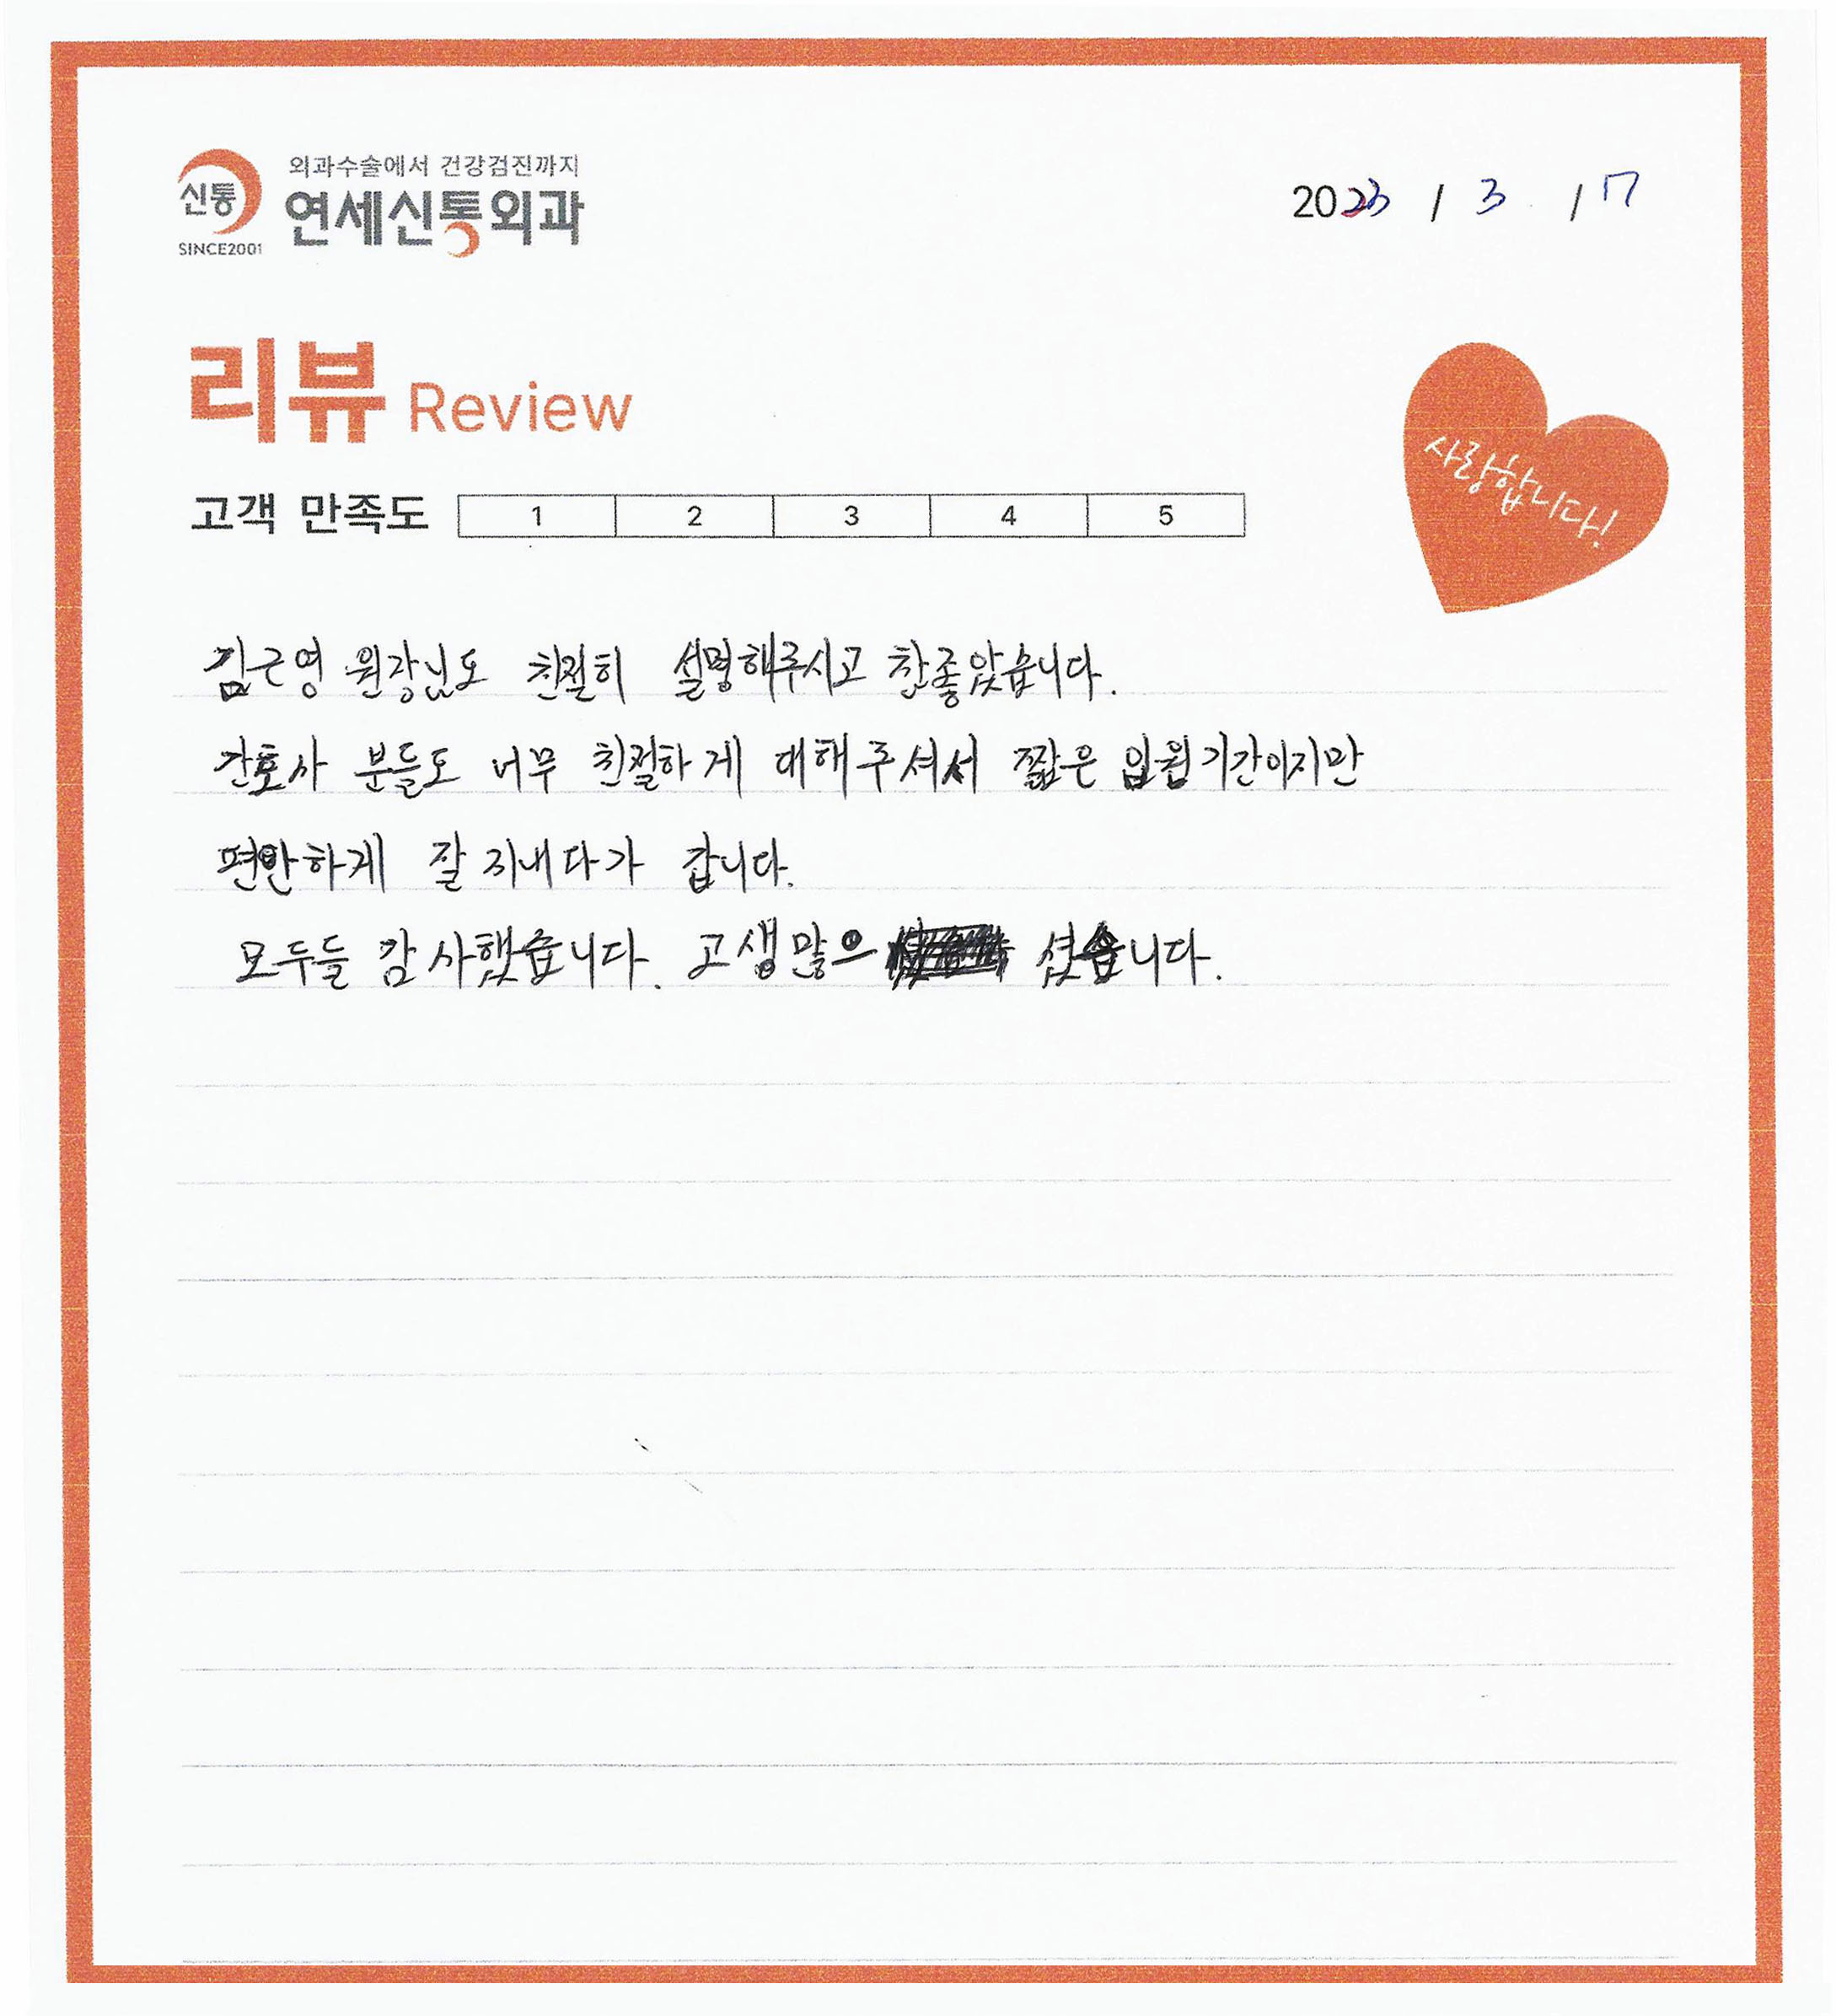 신통
SINCE2001
외과수술에서 건강검진까지
연세신통외과
2023 / 3 / 17
리뷰 Review
고객 만족도 1 2 3 4 5
사랑합니다!
김근영 원장님도 친절히 설명해주시고 참좋았습니다.
간호사 분들도 너무 친절하게 대해주셔서 짧은 입원기간이지만
편안하게 잘 지내다가 갑니다.
모두들 감사했습니다. 고생많으 셨습니다.